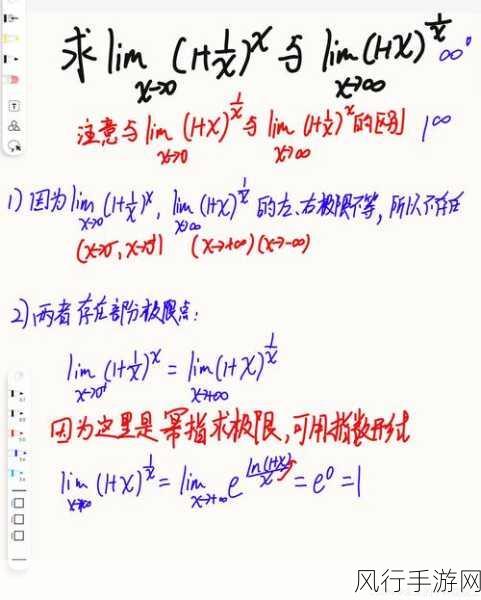 求 lim (1+1/x)^x 与 lim (1+x)^(1/x) ∞^0
x→0 x→∞
注意与 lim (1+x)^(1/x) 与 lim (1+1/x)^x 的区别 1^∞
x→0 x→∞
1) 因为 lim (1+1/x)^x, lim (1+x)^(1/x) 的左、右极限不等, 所以不存在
x→0 x→∞
(x→0⁻, x→0⁺) (x→+∞)(x→-∞)
2) 两者存在部分极限点:
lim (1+1/x)^x = lim (1+x)^(1/x)
x→0⁺ x→+∞
因为这里是幂指求极限, 可用指数形式
lim (1+x)^(1/x) = lim e^(ln(1+x)/x) = e^0 = 1
x→+∞ x→+∞
风行手游网